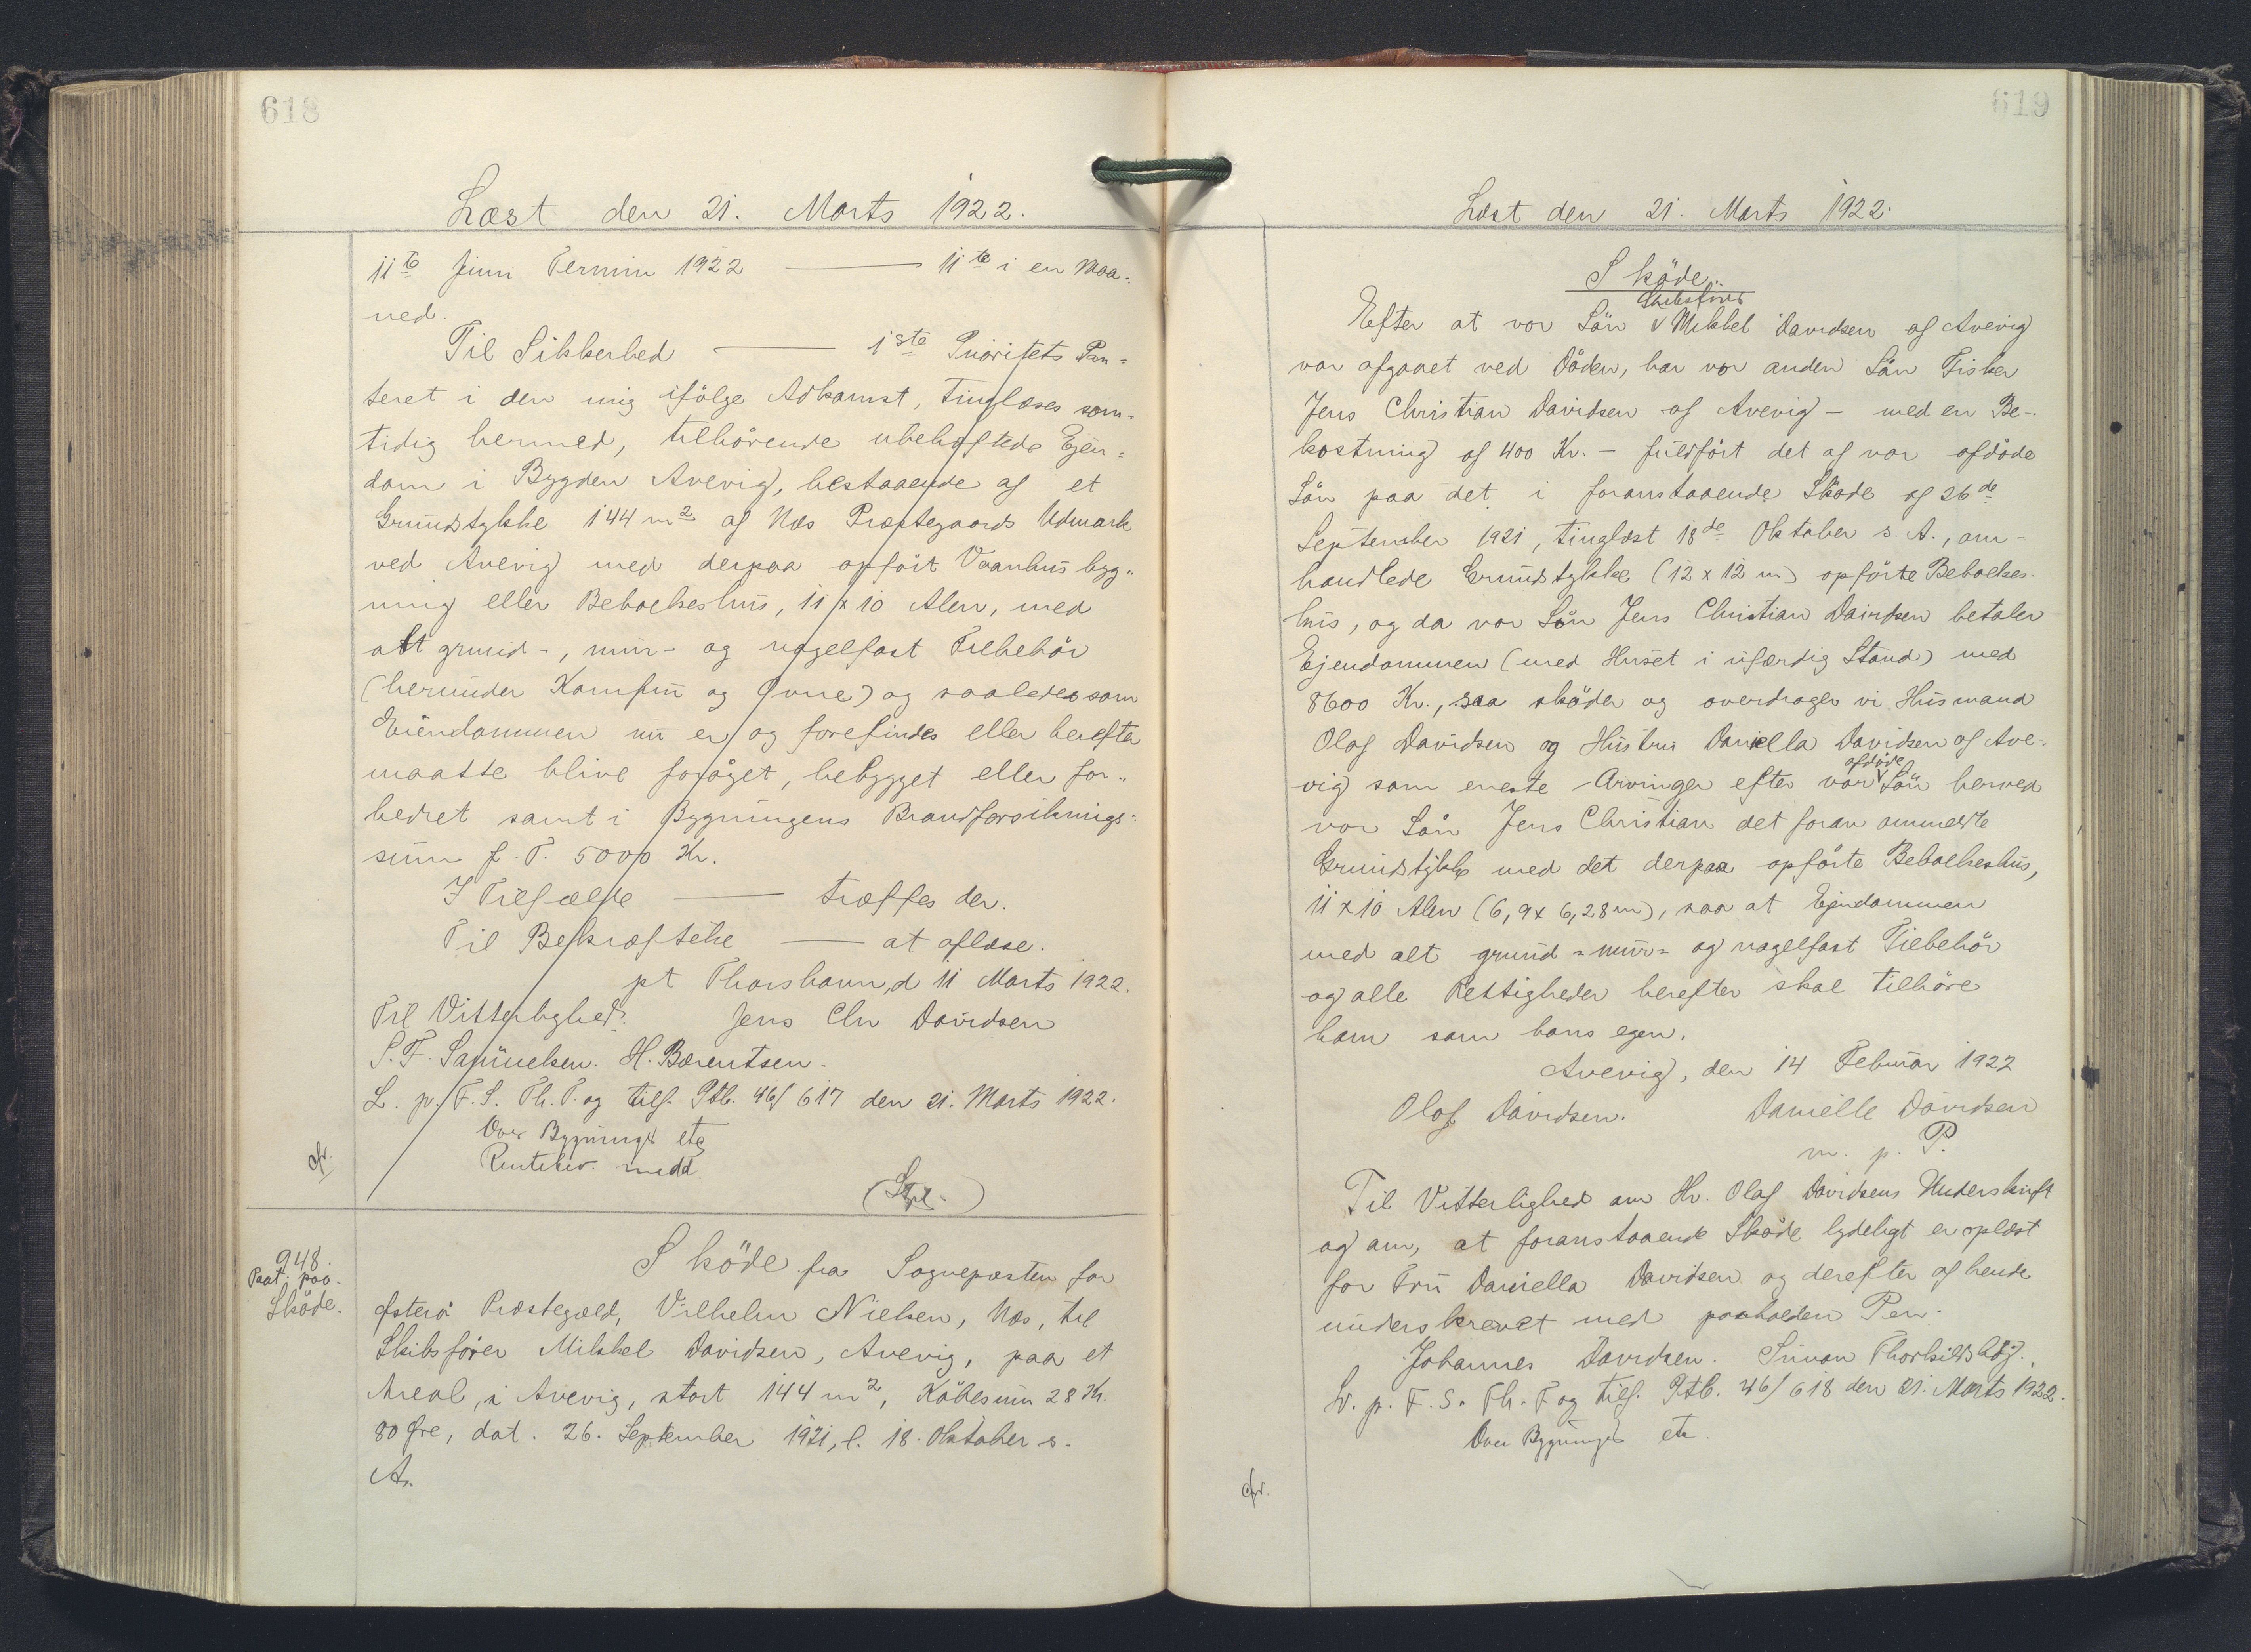 618
Læst den 21. Marts 1922.
11te Juni Termin 1922 — 11te i en Maa-
ned.
Til Sikkerhed — 1ste Prioritets Pan-
teret i den mig ifölge Adkomst, tinglæses sam-
tidig hermed, tilhörende ubehæftede Ejen-
dom i Bygden Avevig, bestaaende af et
Grundstykke 144 m2 af Næs Præstegaards Udmark
ved Avevig med derpaa opfört Vaanhusbyg-
ning eller Beboelseshus, 11 x 10 Alen, med
alt grund-, mur- og nagelfast Tilbehör
(herunder Komfur og Ovne) og saaledes som
Eiendommen nu er og forefindes eller herefter
maatte blive foröget, bebygget eller for-
bedret samt i Bygningens Brandforsikrings-
sum f. T. 5000 Kr.
I Tilfælde — træffes der.
Til Bekræftelse — at aflæse.
pt Thorshavn, d 11 Marts 1922.
Til Vitterlighed: Jens Chr Davidsen
S. F. Samuelsen. H. Barentsen.
L. p. F. S. Th. T. og tilf. Ptb. 46/617 den 21. Marts 1922.
Over Bygninger etc
Rentebev. medd.
cfr.
(Stpl.)
948.
Paat. paa
Sköde.
Sköde fra Sognepræsten for
Østerö Præstegæld, Vilhelm Nielsen, Næs, til
Skibsförer Mikkel Davidsen, Avevig, paa et
Areal, i Avevig, stort 144 m2, Köbesum 28 Kr.
80 Øre, dat. 26. September 1921, l. 18. Oktober s.
A.
619
Læst den 21. Marts 1922.
Sköde.
Skibsförer
Efter at vor Sön V Mikkel Davidsen af Avevig
var afgaaet ved Döden, har vor anden Sön Fisker
Jens Christian Davidsen af Avevig – med en Be-
kostning af 400 Kr. – fuldfört det af vor afdöde
Sön paa det i foranstaaende Sköde af 26de
September 1921, tinglæst 18de Oktober s. A., om-
handlede Grundstykke (12 x 12 m) opförte Beboelses-
hus, og da vor Sön Jens Christian Davidsen betaler
Ejendommen (med Huset i ufærdig Stand) med
8600 Kr., saa sköder og overdrager vi Husmand
Olaf Davidsen og Hustru Daniella Davidsen af Ave-
afdöde
vig som eneste Arvinger efter vor V Sön herved
vor Sön Jens Christian det foran ommeldte
Grundstykke med det derpaa opförte Beboelseshus,
11 x 10 Alen (6,9 x 6,28 m), saa at Ejendommen
med alt grund- mur- og nagelfast Tilbehör
og alle Rettigheder herefter skal tilhöre
ham som hans egen.
Avevig, den 14 Februar 1922
Olaf Davidsen. Danielle Davidsen
m. p. P.
Til Vitterlighed om Hr. Olaf Davidsens Underskrift
og om, at foranstaaende Sköde lydeligt er oplæst
for Fru Daniella Davidsen og derefter af hende
underskrevet med paaholden Pen.
Johannes Davidsen. Simon Thorkildshöj.
L. p. F. S. Th. T og tilf. Ptb. 46/618 den 21. Marts 1922.
Over Bygninger etc.
cfr.